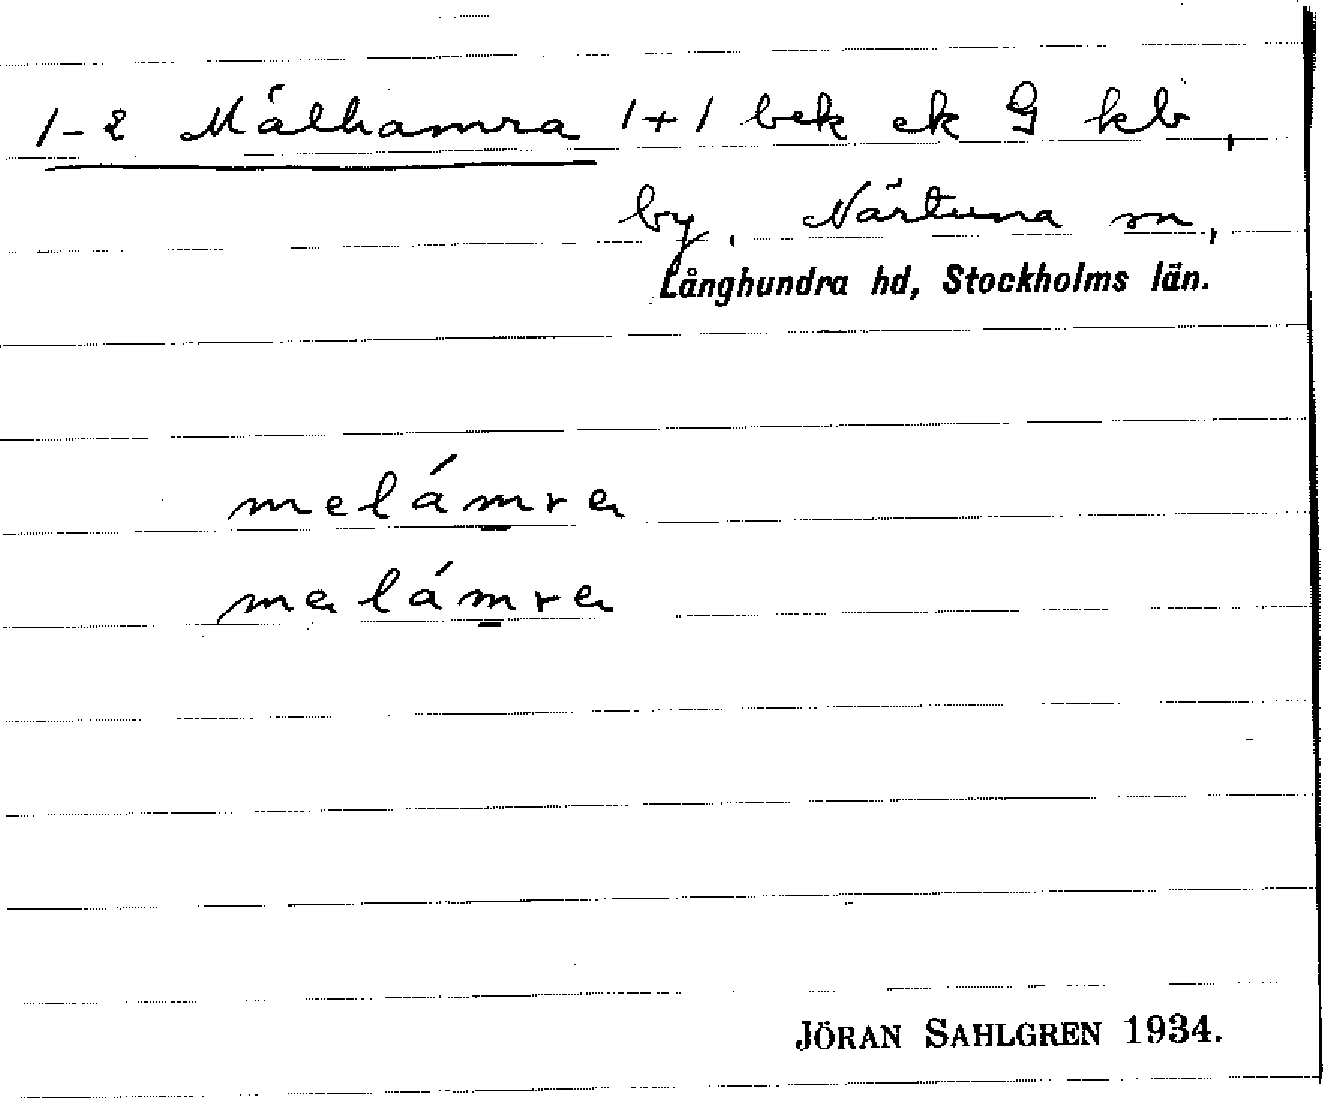 1-2 Mälhamra 1+1 bek ek G kb,
by, Närtuna sn,
Långhundra hd, Stockholms län.
melámra
malámra
JÖRAN SAHLGREN 1934.